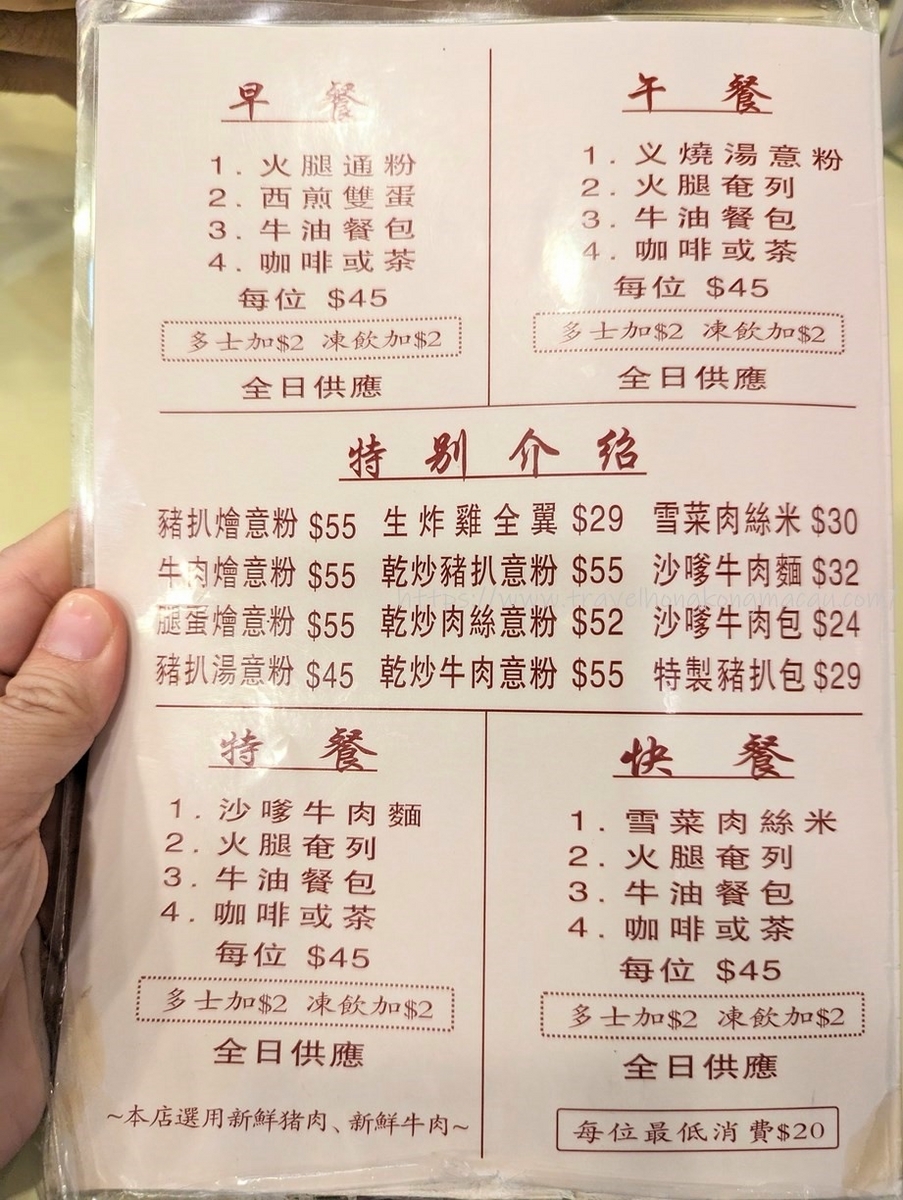 早餐
1. 火腿通粉
2. 西煎雙蛋
3. 牛油餐包
4. 咖啡或茶
每位 $45
多士加$2 凍飲加$2
全日供應
午餐
1. 义燒湯意粉
2. 火腿奄列
3. 牛油餐包
4. 咖啡或茶
每位 $45
多士加$2 凍飲加$2
全日供應
特别介绍
豬扒燴意粉 $55 生炸雞全翼 $29 雪菜肉絲米 $30
牛肉燴意粉 $55 乾炒豬扒意粉 $55 沙嗲牛肉麵 $32
https://www.travelhongkongmacau.com/
腿蛋燴意粉 $55 乾炒肉絲意粉 $52 沙嗲牛肉包 $24
豬扒湯意粉 $45 乾炒牛肉意粉 $55 特製豬扒包 $29
特餐
1. 沙嗲牛肉麵
2. 火腿奄列
3. 牛油餐包
4. 咖啡或茶
每位 $45
多士加$2 凍飲加$2
全日供應
~本店選用新鮮猪肉、新鮮牛肉~
快餐
1. 雪菜肉絲米
2. 火腿奄列
3. 牛油餐包
4. 咖啡或茶
每位 $45
多士加$2 凍飲加$2
全日供應
每位最低消費$20